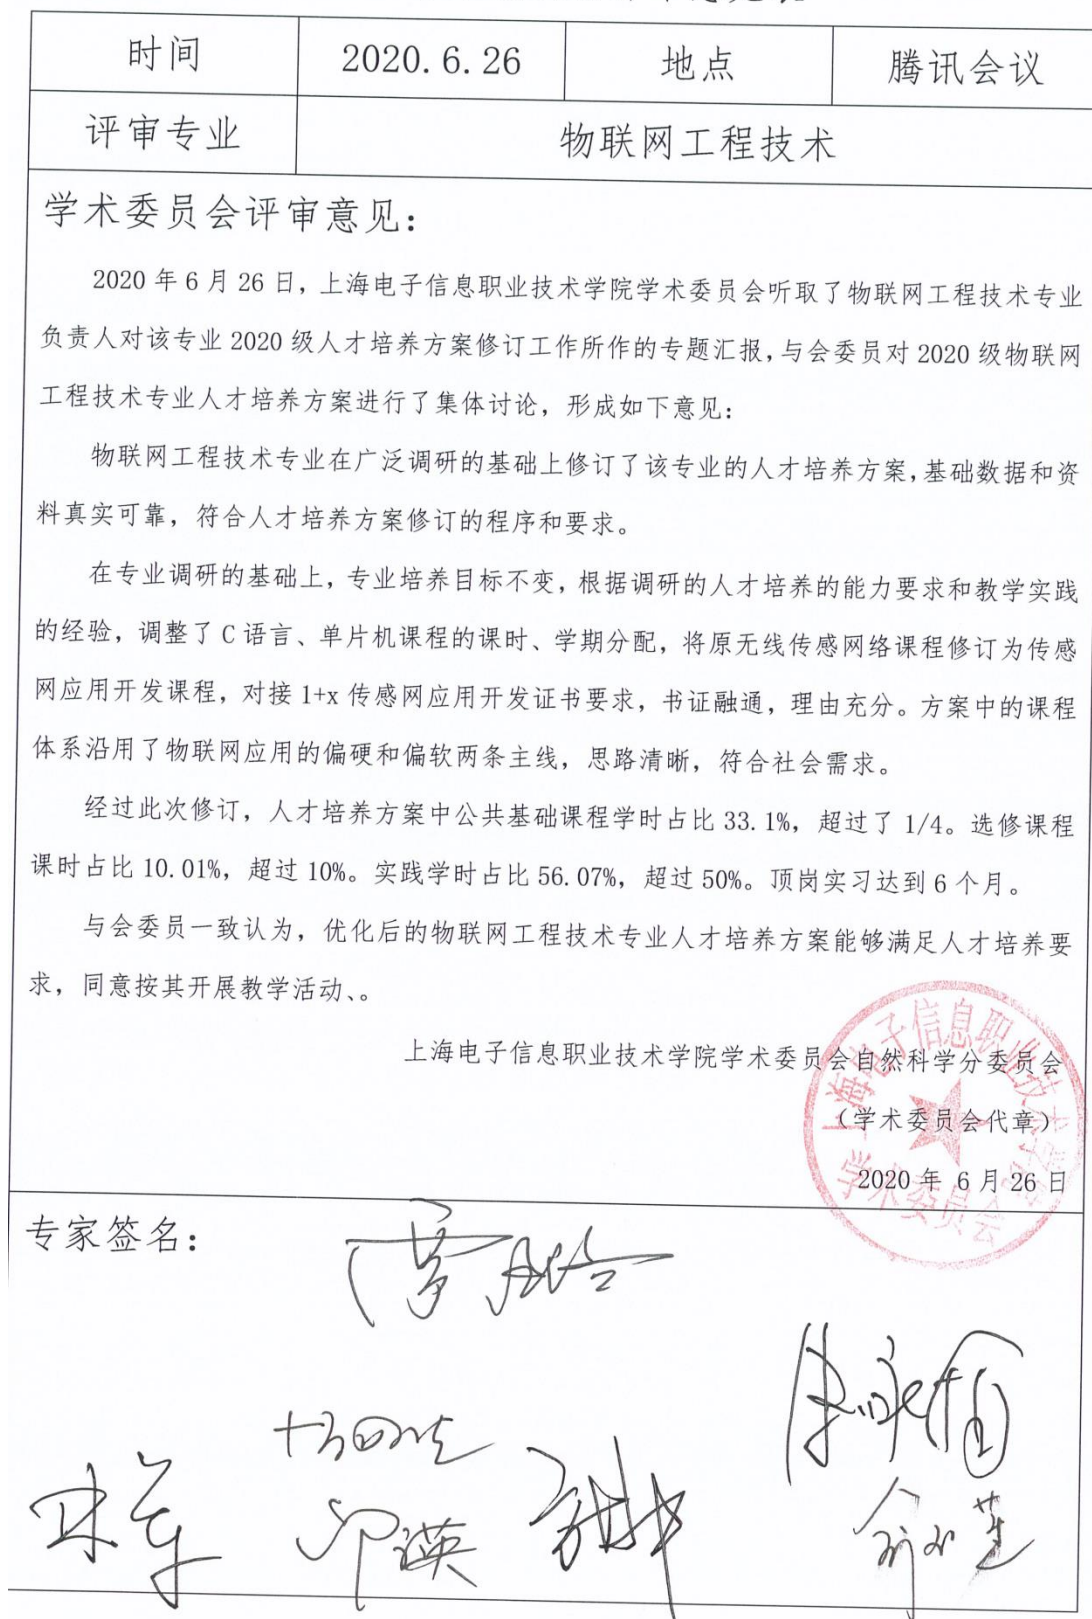 时间 2020.6.26 地点 腾讯会议
评审专业 物联网工程技术
学术委员会评审意见：
2020 年 6 月 26 日，上海电子信息职业技术学院学术委员会听取了物联网工程技术专业
负责人对该专业 2020 级人才培养方案修订工作所作的专题汇报，与会委员对 2020 级物联网
工程技术专业人才培养方案进行了集体讨论，形成如下意见：
物联网工程技术专业在广泛调研的基础上修订了该专业的人才培养方案，基础数据和资
料真实可靠，符合人才培养方案修订的程序和要求。
在专业调研的基础上，专业培养目标不变，根据调研的人才培养的能力要求和教学实践
的经验，调整了 C 语言、单片机课程的课时、学期分配，将原无线传感网络课程修订为传感
网应用开发课程，对接 1+x 传感网应用开发证书要求，书证融通，理由充分。方案中的课程
体系沿用了物联网应用的偏硬和偏软两条主线，思路清晰，符合社会需求。
经过此次修订，人才培养方案中公共基础课程学时占比 33.1%，超过了 1/4。选修课程
课时占比 10.01%，超过 10%。实践学时占比 56.07%，超过 50%。顶岗实习达到 6 个月。
与会委员一致认为，优化后的物联网工程技术专业人才培养方案能够满足人才培养要
求，同意按其开展教学活动、。
上海电子信息职业技术学院学术委员会自然科学分委员会
（学术委员会代章）
2020 年 6 月 26 日
上海电子信息职业技术学院
学术委员会
专家签名：